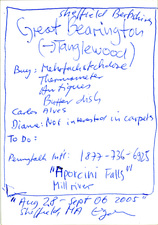 Sheffield Berkshires
Great bearington
(→ Tanglewood)
Buy: Mehrfachsteckdose
Thermometer
Antiques
Butter dish
Carlos Alves
Dianne: Not interested in carpets
To Do:
Pennyfall Intl: 1877-736-6925
"Aporcini Falls"
Mill river
"Aug 28 - Sept 06 2005"
Sheffield MA